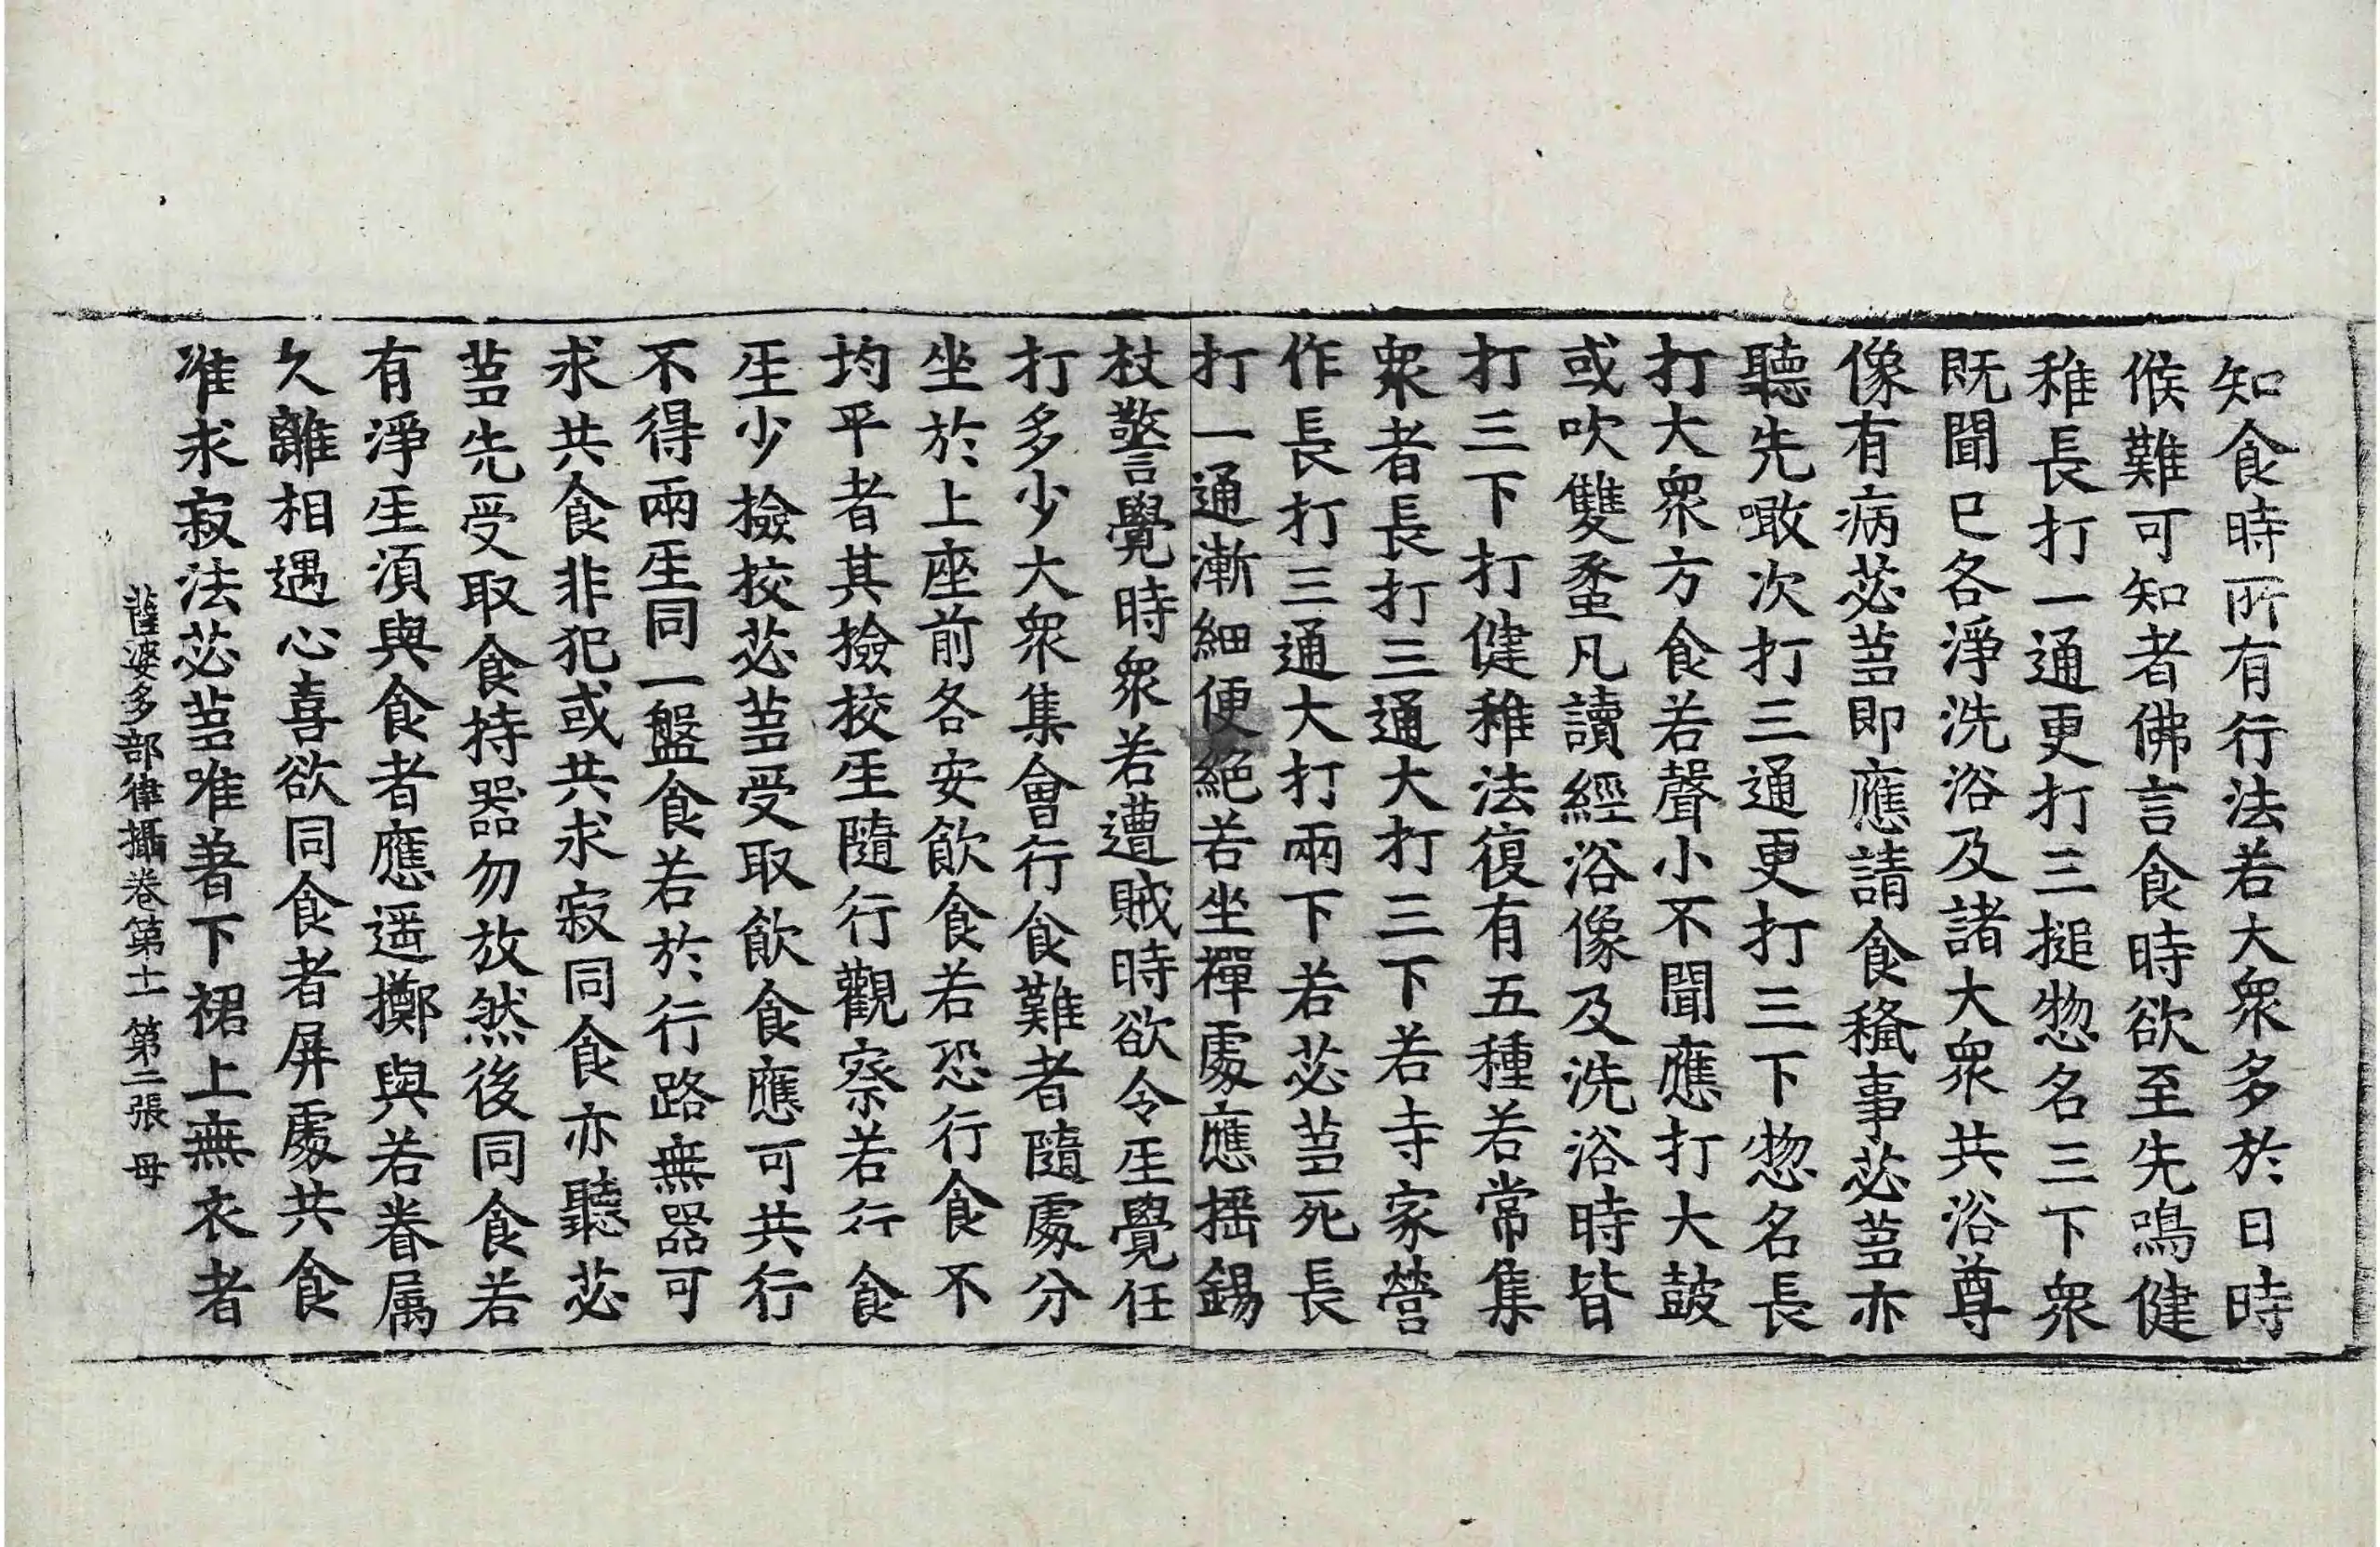 知食時所有行法若大衆多於日時
候難可知者佛言食時欲至先鳴健
稚長打一通更打三搥惣名三下衆
既聞已各淨洗浴及諸大衆共浴尊
像有病苾蒭即應請食穢事苾蒭亦
聽先噉次打三通更打三下惣名長
打大衆方食若聲小不聞應打大鼓
或吹雙蠡凡讀經浴像及洗浴時皆
打三下打健稚法復有五種若常集
衆者長打三通大打三下若寺家營
作長打三通大打兩下若苾蒭死長
打一通漸細便絕若坐禪處應摇錫
杖警覺時衆若遭賊時欲令𤯔覺任
打多少大衆集會行食難者隨處分
坐於上座前各安飲食若恐行食不
均平者其撿挍𤯔隨行觀察若行食
𤯔少撿挍苾蒭受取飲食應可共行
不得兩𤯔同一盤食若於行路無器可
求共食非犯或共求寂同食亦聽苾
蒭先受取食持器勿放然後同食若
有淨𤯔湏與食者應遥擲與若眷属
久離相遇心喜欲同食者屏處共食
准求寂法苾蒭唯著下裙上無衣者
薩婆多部律攝卷第十一 第二張 母